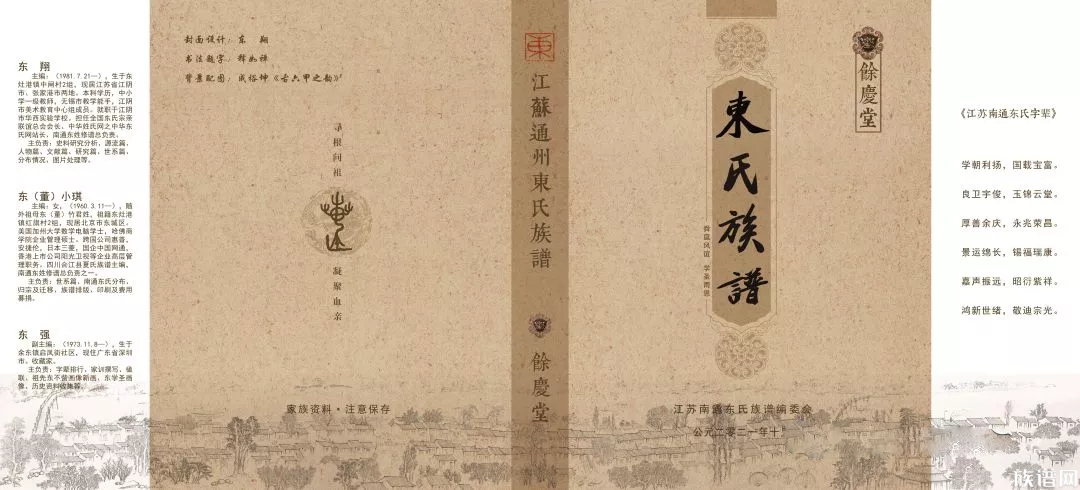 东　翔
主编：（1981.7.21—），生于东
灶港镇中闸村2组，现居江苏省江阴
市、张家港市两地。本科学历，中小
学一级教师，无锡市教学能手，江阴
市美术教育中心组成员。就职于江阴
市华西实验学校。担任全国东氏宗亲
联谊总会会长、中华姓氏网之中华东
氏网站长，南通东姓修谱总负责。
主负责：史料研究分析，源流篇，
人物篇、文献篇、研究篇，世系篇、
分布情况，图片处理等。
东（董）小琪
主编：女，（1960.3.11—），随
外祖母东（董）竹君姓，祖籍东灶港
镇红旗村2组，现居北京市东城区。
美国加州大学数学电脑学士，哈佛商
学院企业管理硕士。跨国公司惠普，
安捷伦，日本三菱，国企中国网通，
香港上市公司阳光卫视等企业高层管
理职务。四川合江县夏氏族谱主编、
南通东姓修谱总负责之一。
主负责：世系篇、南通东氏分布、
归宗及迁移，族谱排版、印刷及费用
募捐。
东　强
副主编：（1973.11.8—），生于
余东镇启凤街社区，现住广东省深圳
市。收藏家。
主负责：字辈排行，家训撰写、楹
联，祖先东不訾画像新画，东学圣画
像、历史资料收集等。
封面设计：东　翔
书法题字：释如禅
背景配图：成裕坤《古六甲之韵》
寻根问祖
凝聚血亲
家族资料·注意保存
東
江蘇通州東氏族譜
餘慶堂
餘慶堂
東氏族譜
舜庭风谊　学圣雨恩
江苏南通东氏族谱编委会
公元二零二一年十
《江苏南通东氏字辈》
学朝利扬，国载宝富。
良卫宇俊，玉锦云堂。
厚善余庆，永兆荣昌。
景运绵长，锡福瑞康。
嘉声振远，昭衍紫祥。
鸿新世绪，敬迪宗光。
族谱网